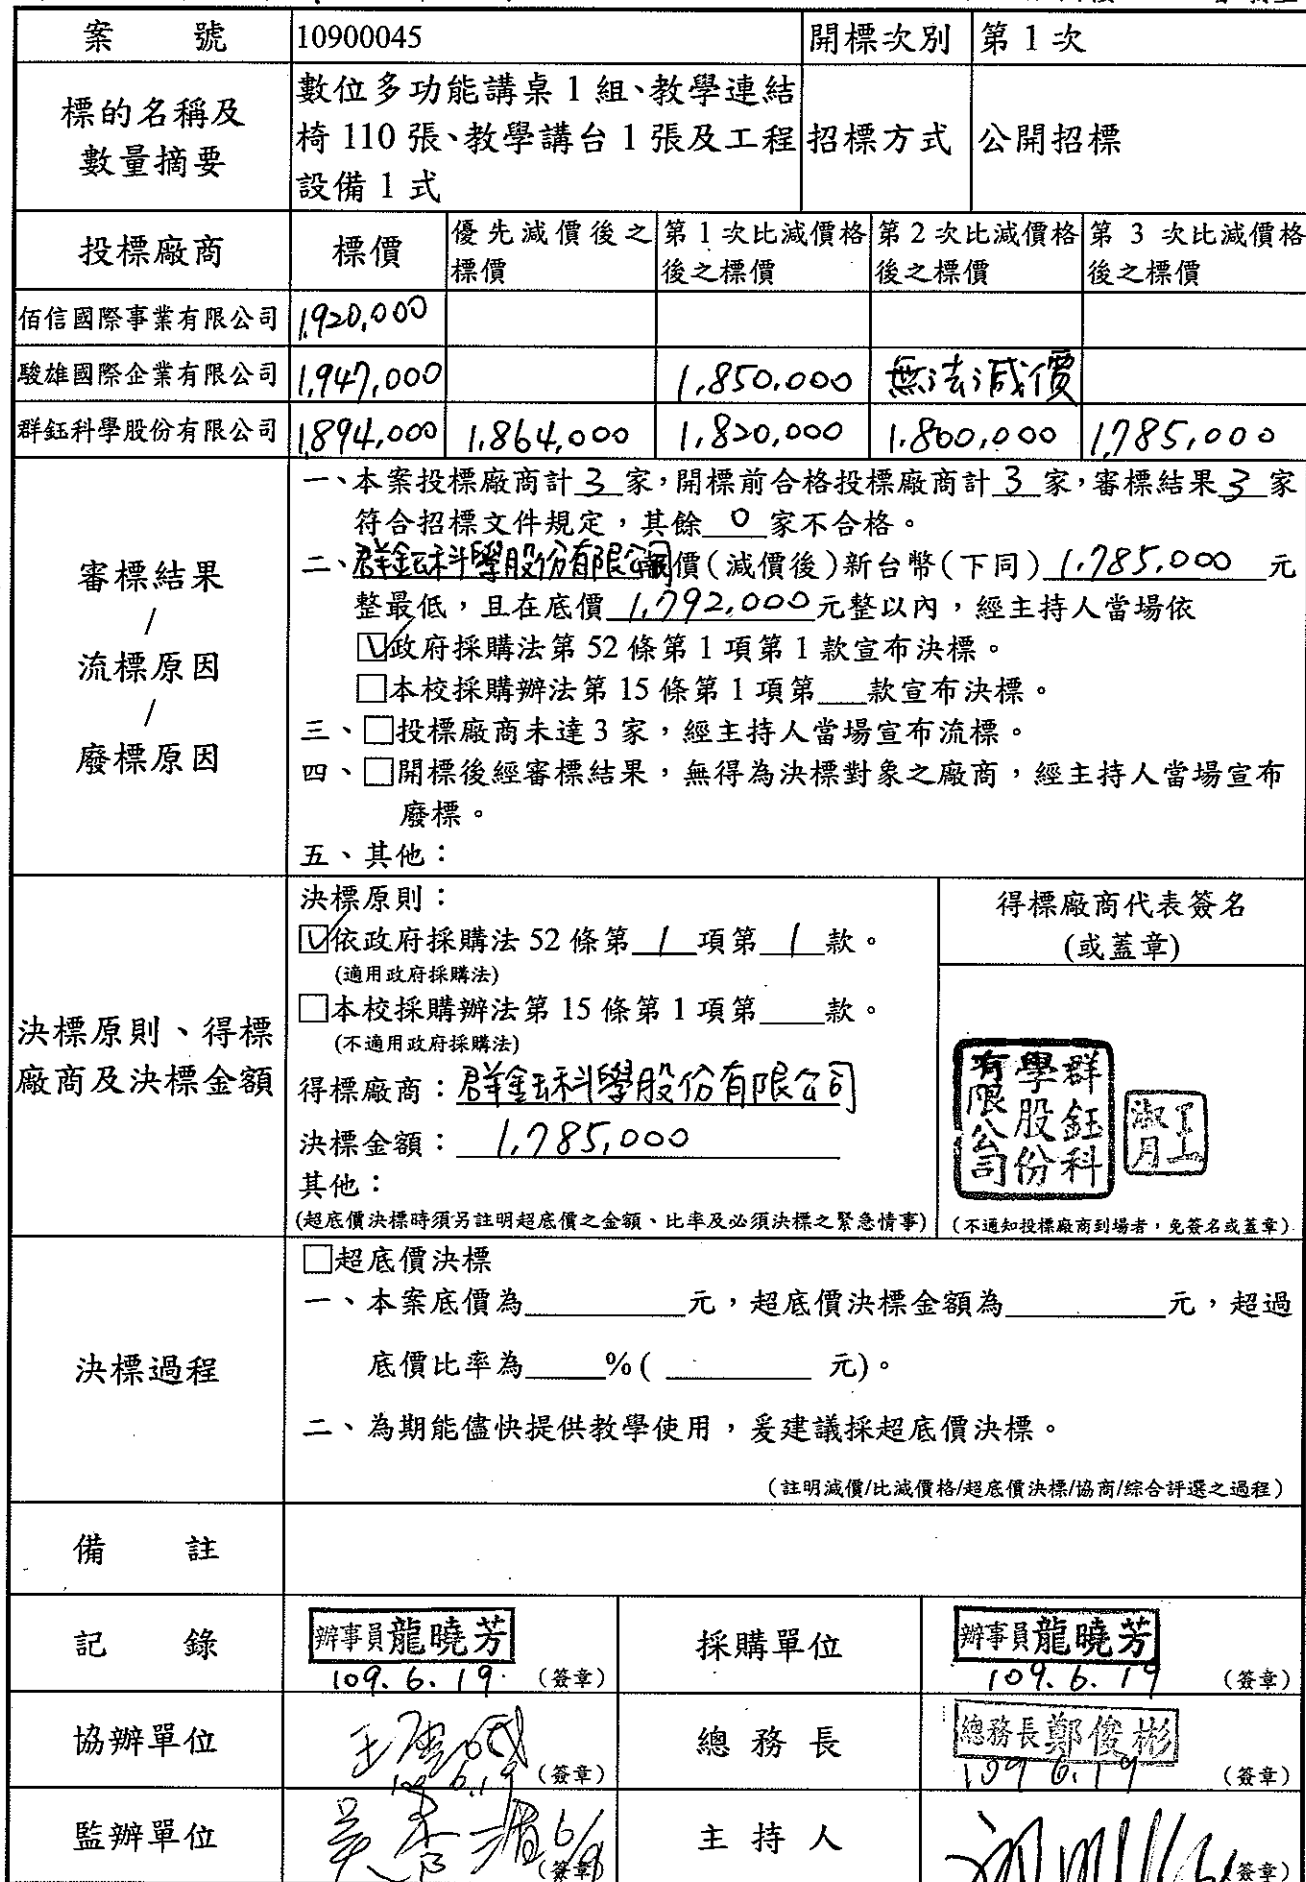 案 號 10900045 開標次別 第 1 次
標的名稱及
數量摘要
數位多功能講桌 1 組、教學連結
椅 110 張、教學講台 1 張及工程
設備 1 式
招標方式 公開招標
投標廠商 標價 優先減價後之標價 第 1 次比減價格後之標價 第 2 次比減價格後之標價 第 3 次比減價格後之標價
佰信國際事業有限公司 1,920,000
駿雄國際企業有限公司 1,947,000 1,850,000 無法減價
群鈺科學股份有限公司 1,894,000 1,864,000 1,820,000 1,800,000 1,785,000
審標結果
/
流標原因
/
廢標原因
一、本案投標廠商計 3 家,開標前合格投標廠商計 3 家,審標結果 3 家
符合招標文件規定,其餘 0 家不合格。
二、群鈺科學股份有限公司 價(減價後)新台幣(下同) 1,785,000 元
整最低,且在底價 1,792,000 元整以內,經主持人當場依
☑政府採購法第 52 條第 1 項第 1 款宣布決標。
□本校採購辦法第 15 條第 1 項第___款宣布決標。
三、□投標廠商未達 3 家,經主持人當場宣布流標。
四、□開標後經審標結果,無得為決標對象之廠商,經主持人當場宣布
廢標。
五、其他:
決標原則、得標
廠商及決標金額
決標原則:
☑依政府採購法 52 條第 1 項第 1 款。
(適用政府採購法)
□本校採購辦法第 15 條第 1 項第____款。
(不適用政府採購法)
得標廠商:群鈺科學股份有限公司
決標金額: 1,785,000
其他:
(超底價決標時須另註明超底價之金額、比率及必須決標之緊急情事)
得標廠商代表簽名
(或蓋章)
群鈺科學股份有限公司
王淑月
(不通知投標廠商到場者,免簽名或蓋章)
決標過程
□超底價決標
一、本案底價為__________元,超底價決標金額為__________元,超過
底價比率為_____%( _________ 元)。
二、為期能儘快提供教學使用,爰建議採超底價決標。
(註明減價/比減價格/超底價決標/協商/綜合評選之過程)
備 註
記 錄 辦事員龍曉芳 109.6.19. (簽章) 採購單位 辦事員龍曉芳 109.6.19 (簽章)
協辦單位 109.6.19 (簽章) 總務長 總務長鄭俊彬 109 6.19 (簽章)
監辦單位 (簽章) 主持人 (簽章)